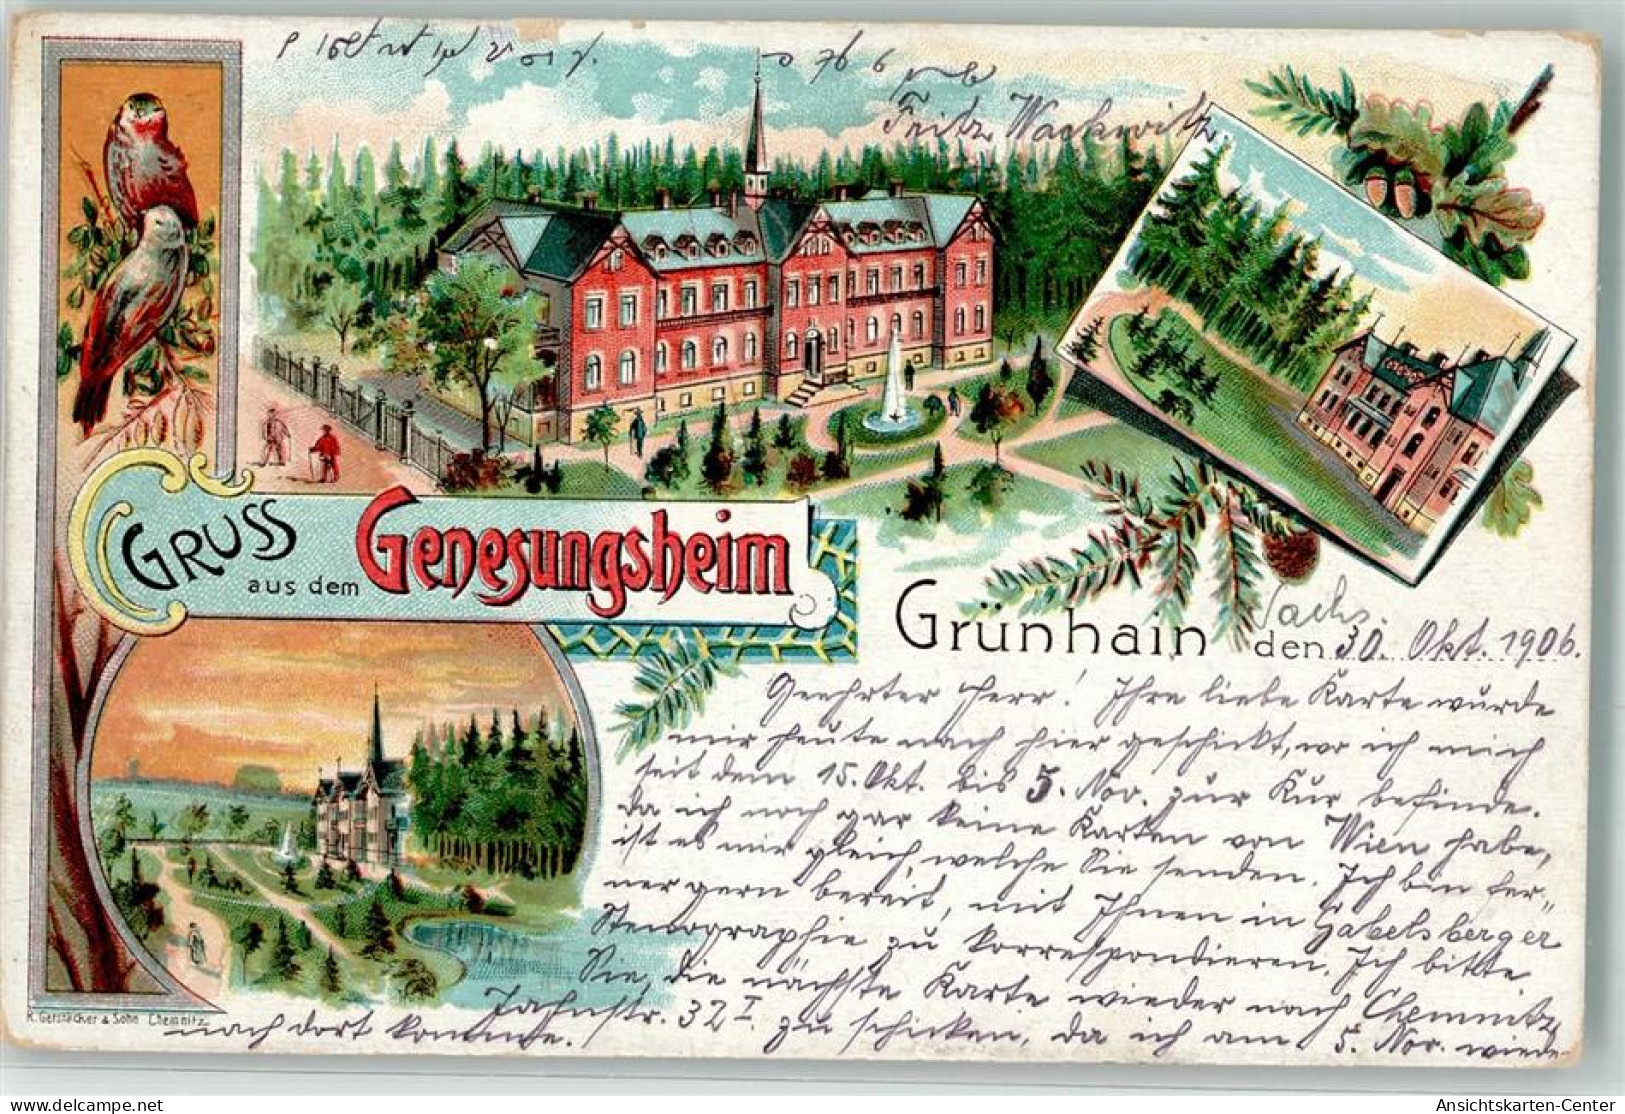 Fritz Wackwitz.
GRUSS
aus dem Genesungsheim
Grünhain Sachs.
den 30. Okt. 1906.
Geehrter Herr! Ihre liebe Karte wurde
mir heute nach hier geschickt, wo ich mich
seit dem 15. Okt. bis 5. Nov. zur Kur befinde.
da ich noch gar keine Karten von Wien habe,
ist es mir gleich, welche Sie senden. Ich bin fer„
ner gern bereit, mit Ihnen in Gabelsberger
Stenographie zu korrespondieren. Ich bitte
Sie, die nächste Karte wieder nach Chemnitz,
Jahnstr. 32 I. zu schicken, da ich am 5. Nov. wieder
nach dort komme.
R. Gerstäcker & Sohn Chemnitz
Ansichtskarten-Center
delcampe.net